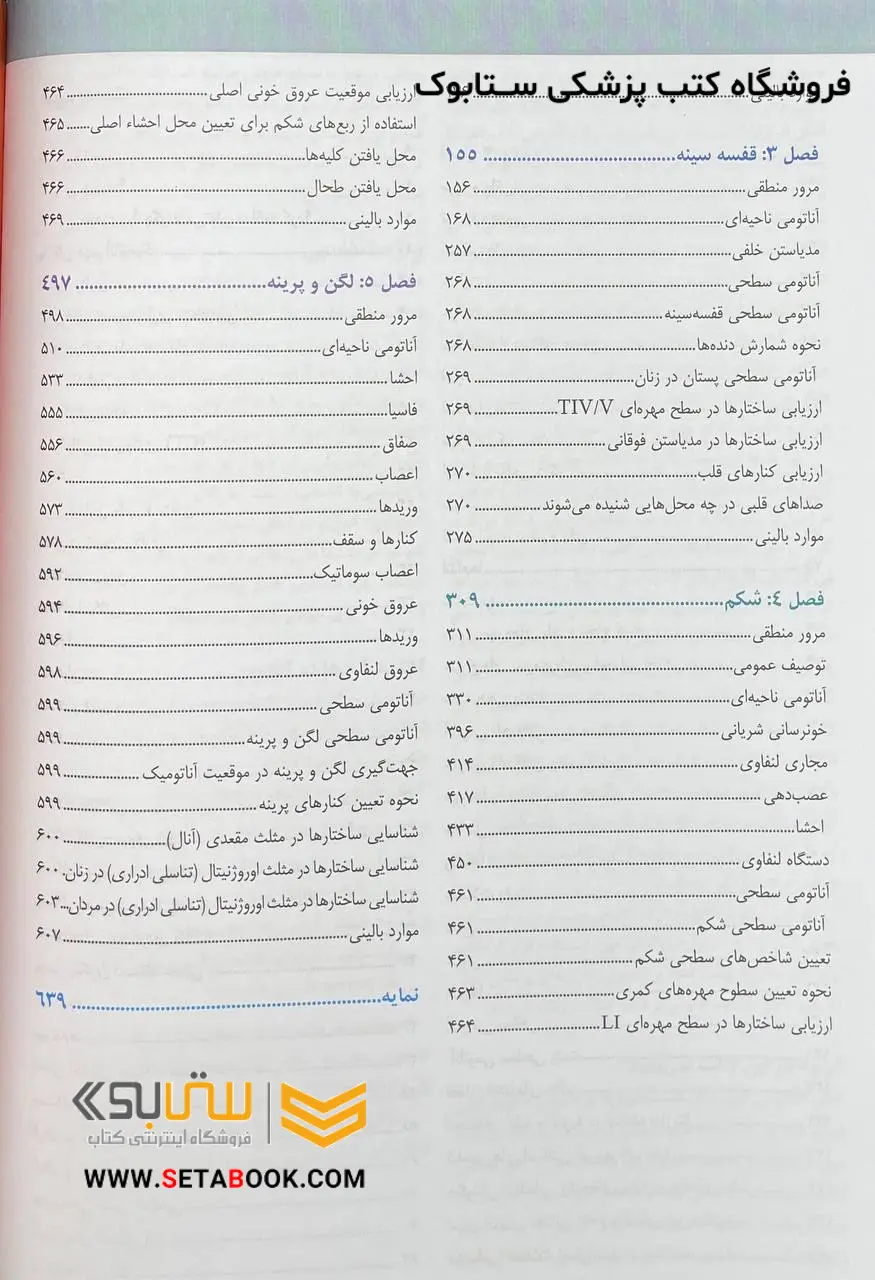 فروشگاه کتب پزشکی ستابوک
موارد بالینی
فصل ۳: قفسه سینه ۱۵۵
مرور منطقی ۱۵۶
آناتومی ناحیه‌ای ۱۶۸
مدیاستن خلفی ۲۵۷
آناتومی سطحی ۲۶۸
آناتومی سطحی قفسه‌سینه ۲۶۸
نحوه شمارش دنده‌ها ۲۶۸
آناتومی سطحی پستان در زنان ۲۶۹
ارزیابی ساختارها در سطح مهره‌ای TIV/V ۲۶۹
ارزیابی ساختارها در مدیاستن فوقانی ۲۶۹
ارزیابی کنارهای قلب ۲۷۰
صداهای قلبی در چه محل‌هایی شنیده می‌شوند ۲۷۰
موارد بالینی ۲۷۵
فصل ٤: شکم ۳۰۹
مرور منطقی ۳۱۱
توصیف عمومی ۳۱۱
آناتومی ناحیه‌ای ۳۳۰
خونرسانی شریانی ۳۹۶
مجاری لنفاوی ۴۱۴
عصب‌دهی ۴۱۷
احشا ۴۳۳
دستگاه لنفاوی ۴۵۰
آناتومی سطحی ۴۶۱
آناتومی سطحی شکم ۴۶۱
تعیین شاخص‌های سطحی شکم ۴۶۱
نحوه تعیین سطوح مهره‌های کمری ۴۶۳
ارزیابی ساختارها در سطح مهره‌ای LI ۴۶۴
ارزیابی موقعیت عروق خونی اصلی ۴۶۴
استفاده از ربع‌های شکم برای تعیین محل احشاء اصلی ۴۶۵
محل یافتن کلیه‌ها ۴۶۶
محل یافتن طحال ۴۶۶
موارد بالینی ۴۶۹
فصل ۵: لگن و پرینه ٤٩٧
مرور منطقی ۴۹۸
آناتومی ناحیه‌ای ۵۱۰
احشا ۵۳۳
فاسیا ۵۵۵
صفاق ۵۵۶
اعصاب ۵۶۰
وریدها ۵۷۳
کنارها و سقف ۵۷۸
اعصاب سوماتیک ۵۹۲
عروق خونی ۵۹۴
وریدها ۵۹۶
عروق لنفاوی ۵۹۸
آناتومی سطحی ۵۹۹
آناتومی سطحی لگن و پرینه ۵۹۹
جهت‌گیری لگن و پرینه در موقعیت آناتومیک ۵۹۹
نحوه تعیین کنارهای پرینه ۵۹۹
شناسایی ساختارها در مثلث مقعدی (آنال) ۶۰۰
شناسایی ساختارها در مثلث اوروژنیتال (تناسلی ادراری) در زنان ۶۰۰
شناسایی ساختارها در مثلث اوروژنیتال (تناسلی ادراری) در مردان ۶۰۳
موارد بالینی ۶۰۷
نمایه ٦٣٩
ستابوک
فروشگاه اینترنتی کتاب
WWW.SETABOOK.COM